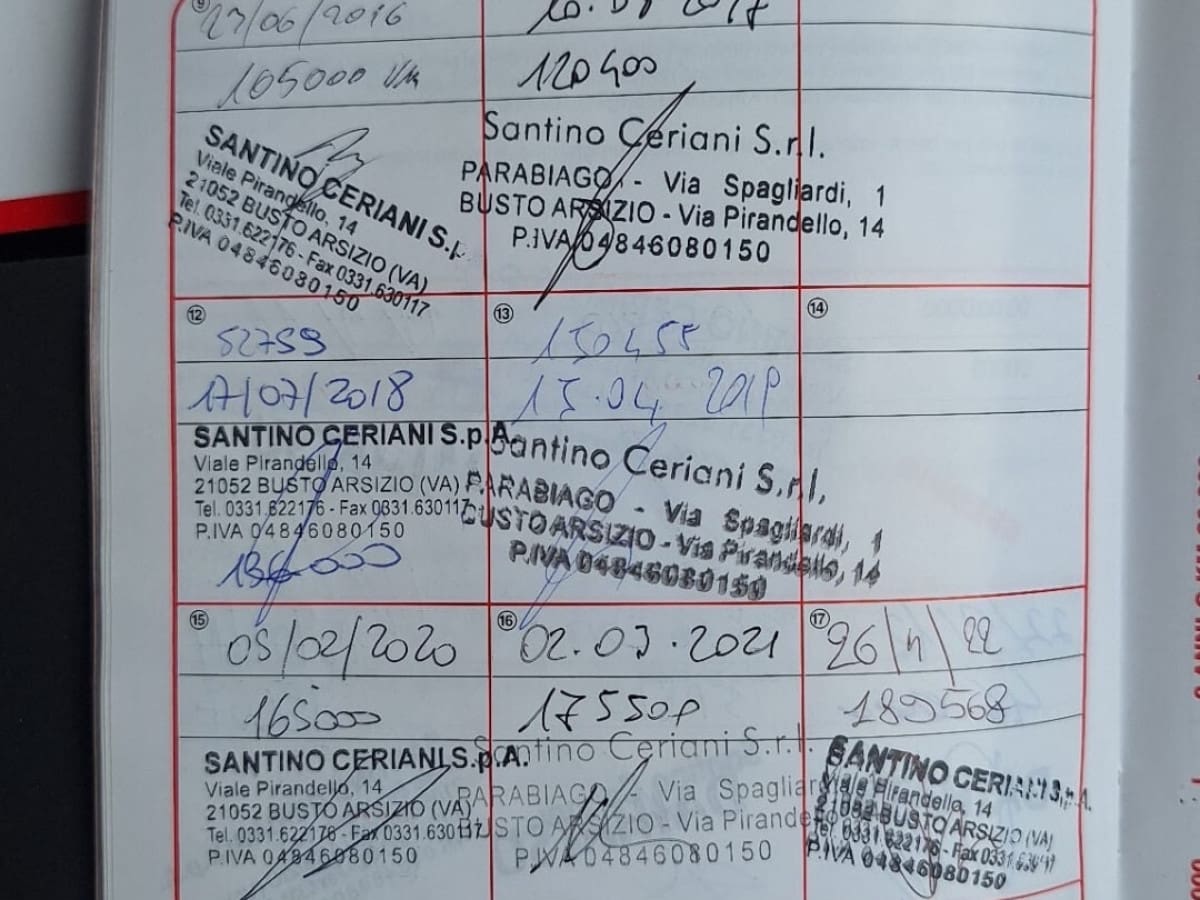 ⑨
27/06/2016
105000 km
SANTINO CERIANI S.r.
Viale Pirandello, 14
21052 BUSTO ARSIZIO (VA)
Tel. 0331.622176 - Fax 0331.630117
P.IVA 04846080150
2017
120400
Santino Ceriani S.r.l.
PARABIAGO - Via Spagliardi, 1
BUSTO ARSIZIO - Via Pirandello, 14
P.IVA 04846080150
⑫
52759
17/07/2018
SANTINO CERIANI S.p.A.
Viale Pirandello, 14
21052 BUSTO ARSIZIO (VA)
Tel. 0331.622176 - Fax 0331.630117
P.IVA 04846080150
⑬
150455
15.04 2019
Santino Ceriani S.r.l.
PARABIAGO - Via Spagliardi, 1
BUSTO ARSIZIO - Via Pirandello, 14
P.IVA 04846080150
⑭
⑮
05/02/2020
165000
SANTINO CERIANI S.p.A.
Viale Pirandello, 14
21052 BUSTO ARSIZIO (VA)
Tel. 0331.622176 - Fax 0331.630117
P.IVA 04846080150
⑯
02.03.2021
175500
Santino Ceriani S.r.l.
PARABIAGO - Via Spagliar
BUSTO ARSIZIO - Via Pirandello
P.IVA 04846080150
⑰
26/11/22
189568
SANTINO CERIANI S.p.A.
Viale Pirandello, 14
21052 BUSTO ARSIZIO (VA)
Tel. 0331.622176 - Fax 0331.630117
P.IVA 04846080150